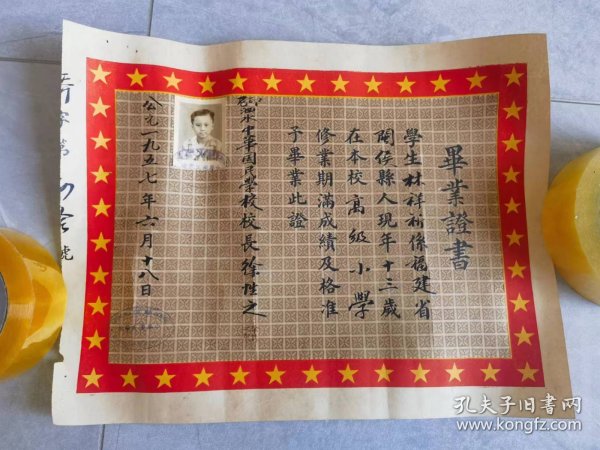 畢業證書
學生林祥新係福建省
閩侯縣人現年十三歲
在本校高級小學
修業期滿成績及格准
予畢業此證
中華國民學校校長徐胜之
公元一九五七年六月十八日
字第
號
孔夫子旧书网
www.kongfz.com